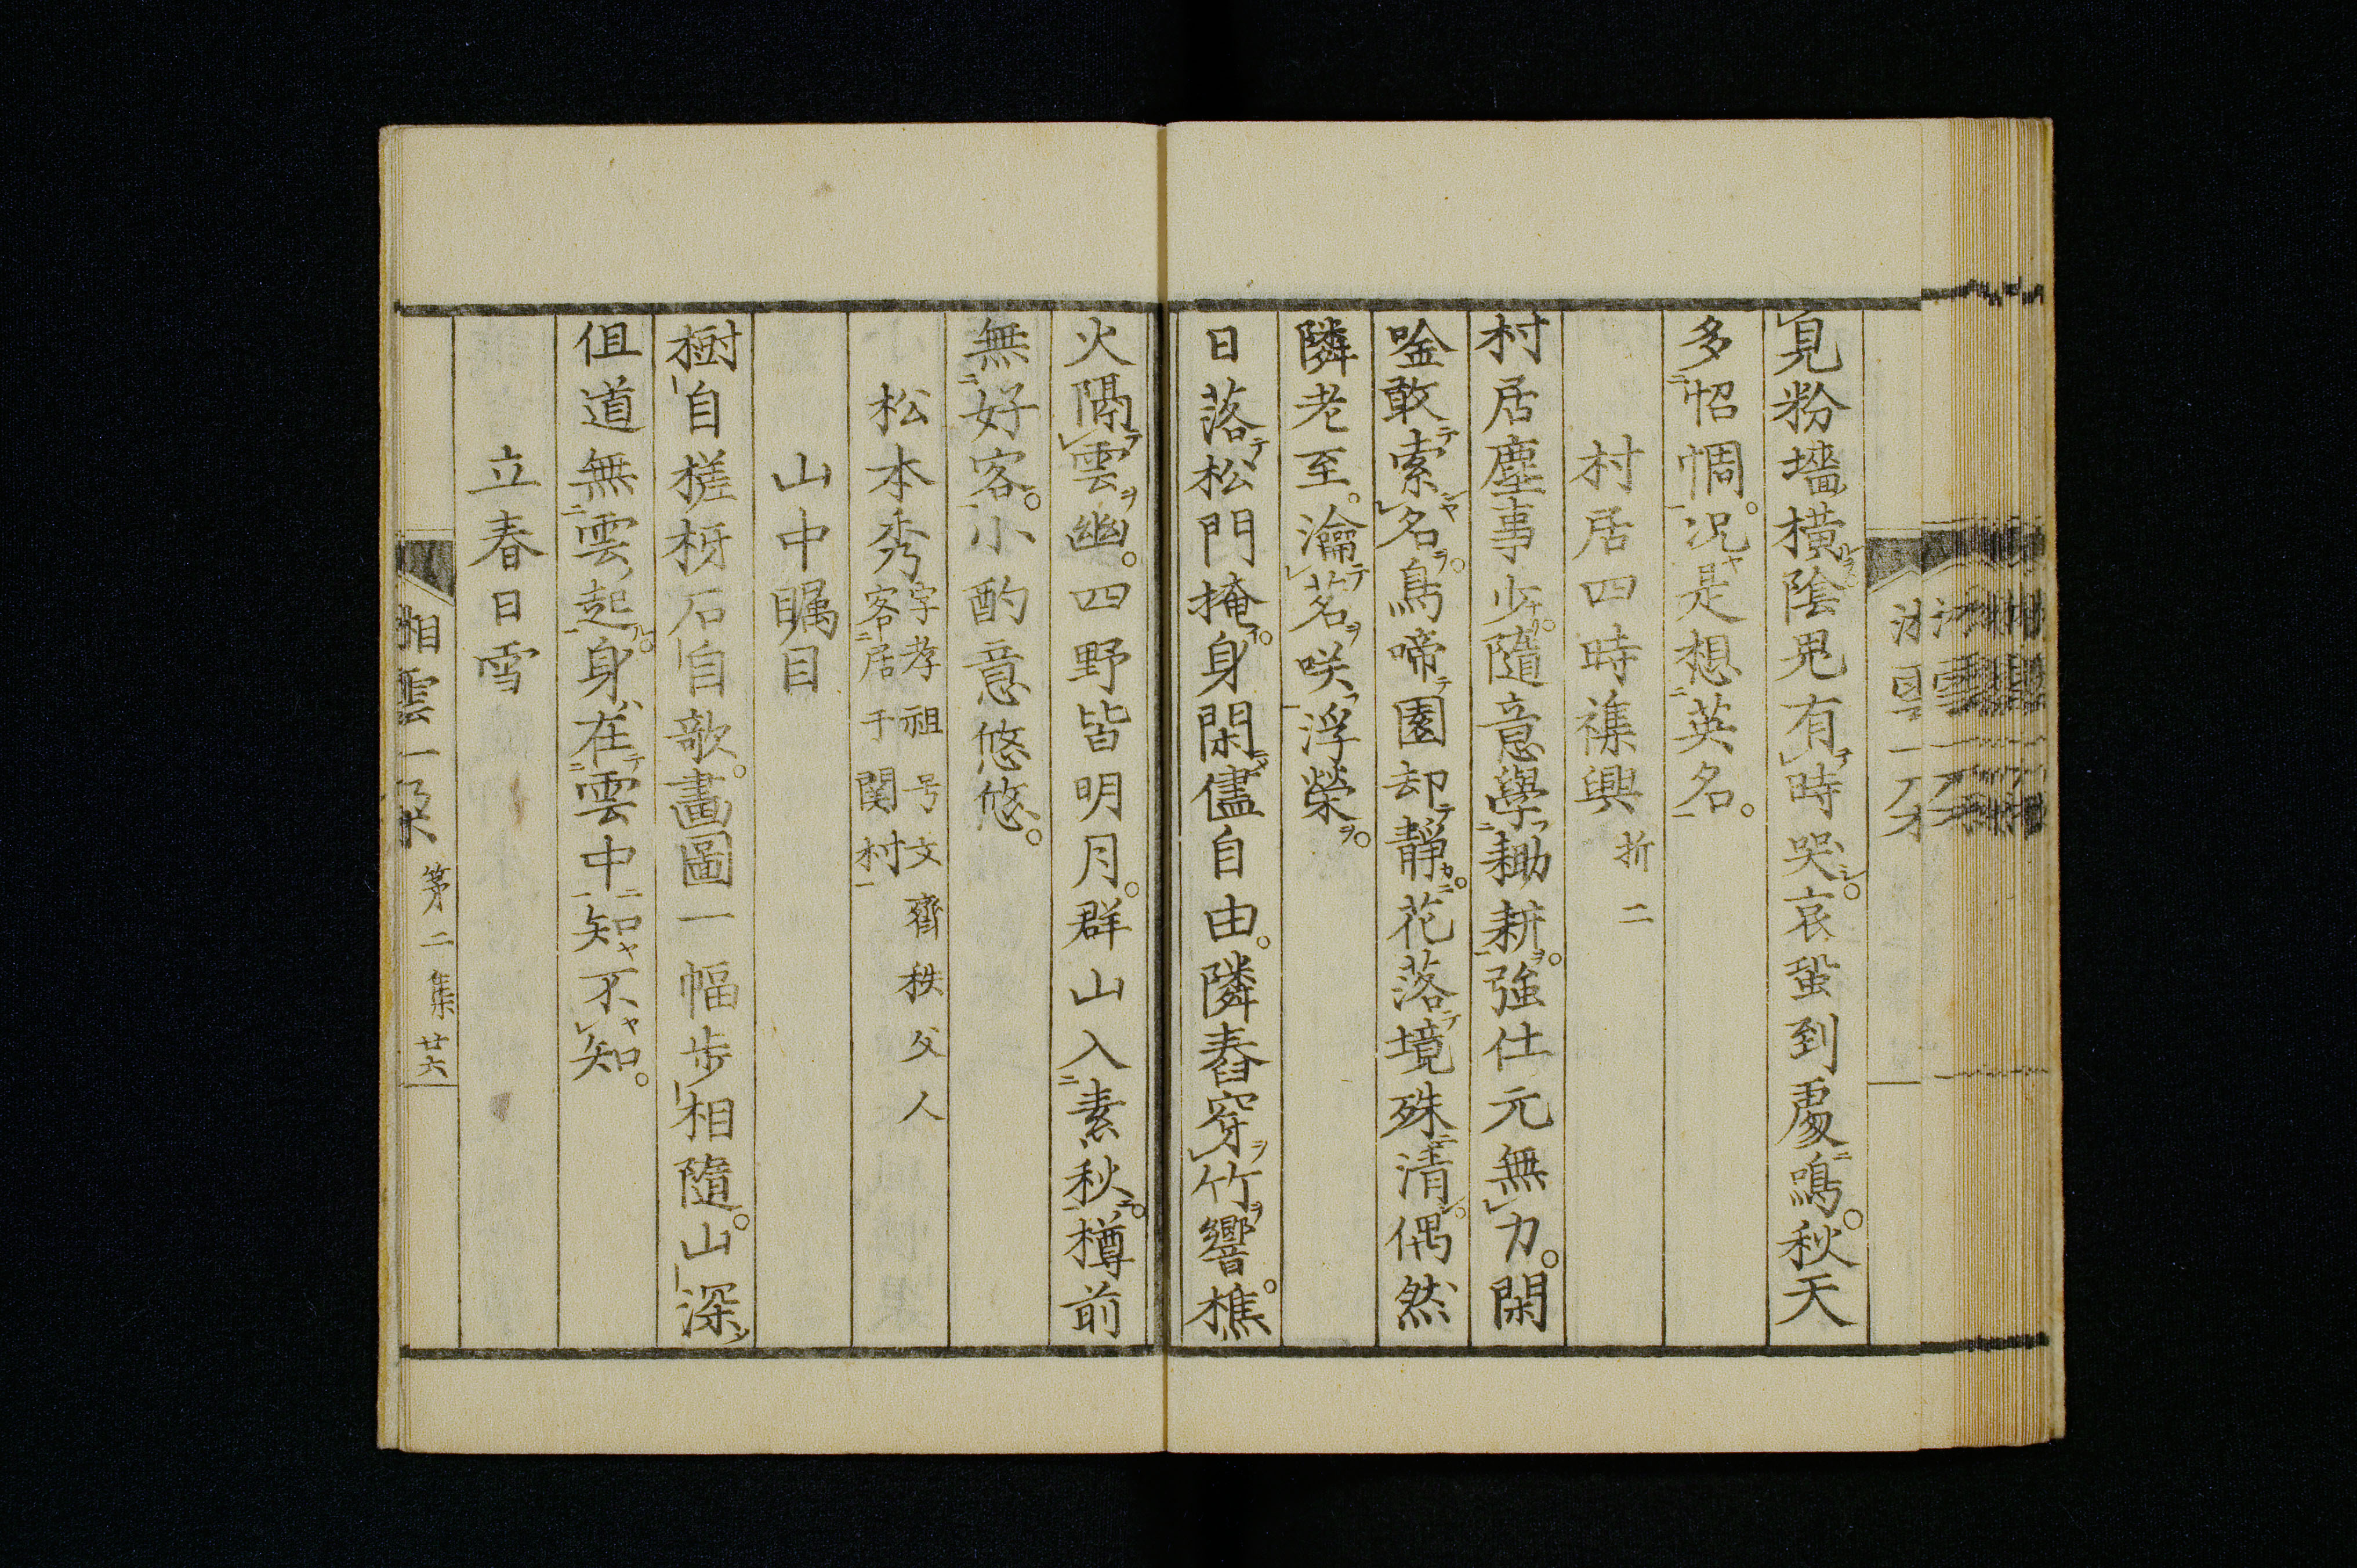 見粉墻横陰鬼有時哭哀蛩到處鳴秋天
多怊惆况是想英名
村居四時襍興折二
村居塵事少隨意學耡耕強仕元無力閑
唫敢索名鳥啼園却靜花落境殊清偶然
隣老至瀹茗咲浮榮
日落松門掩身閑儘自由隣舂穿竹響樵
火隔雲幽四野皆明月群山入素秋樽前
無好客小酌意悠悠
松本秀字孝祖号文齋秩父人
客居于関村
山中瞩目
樹自槎枒石自欹畵圖一幅步相隨山深
伹道無雲起身在雲中知不知
立春日雪
第二集廿六